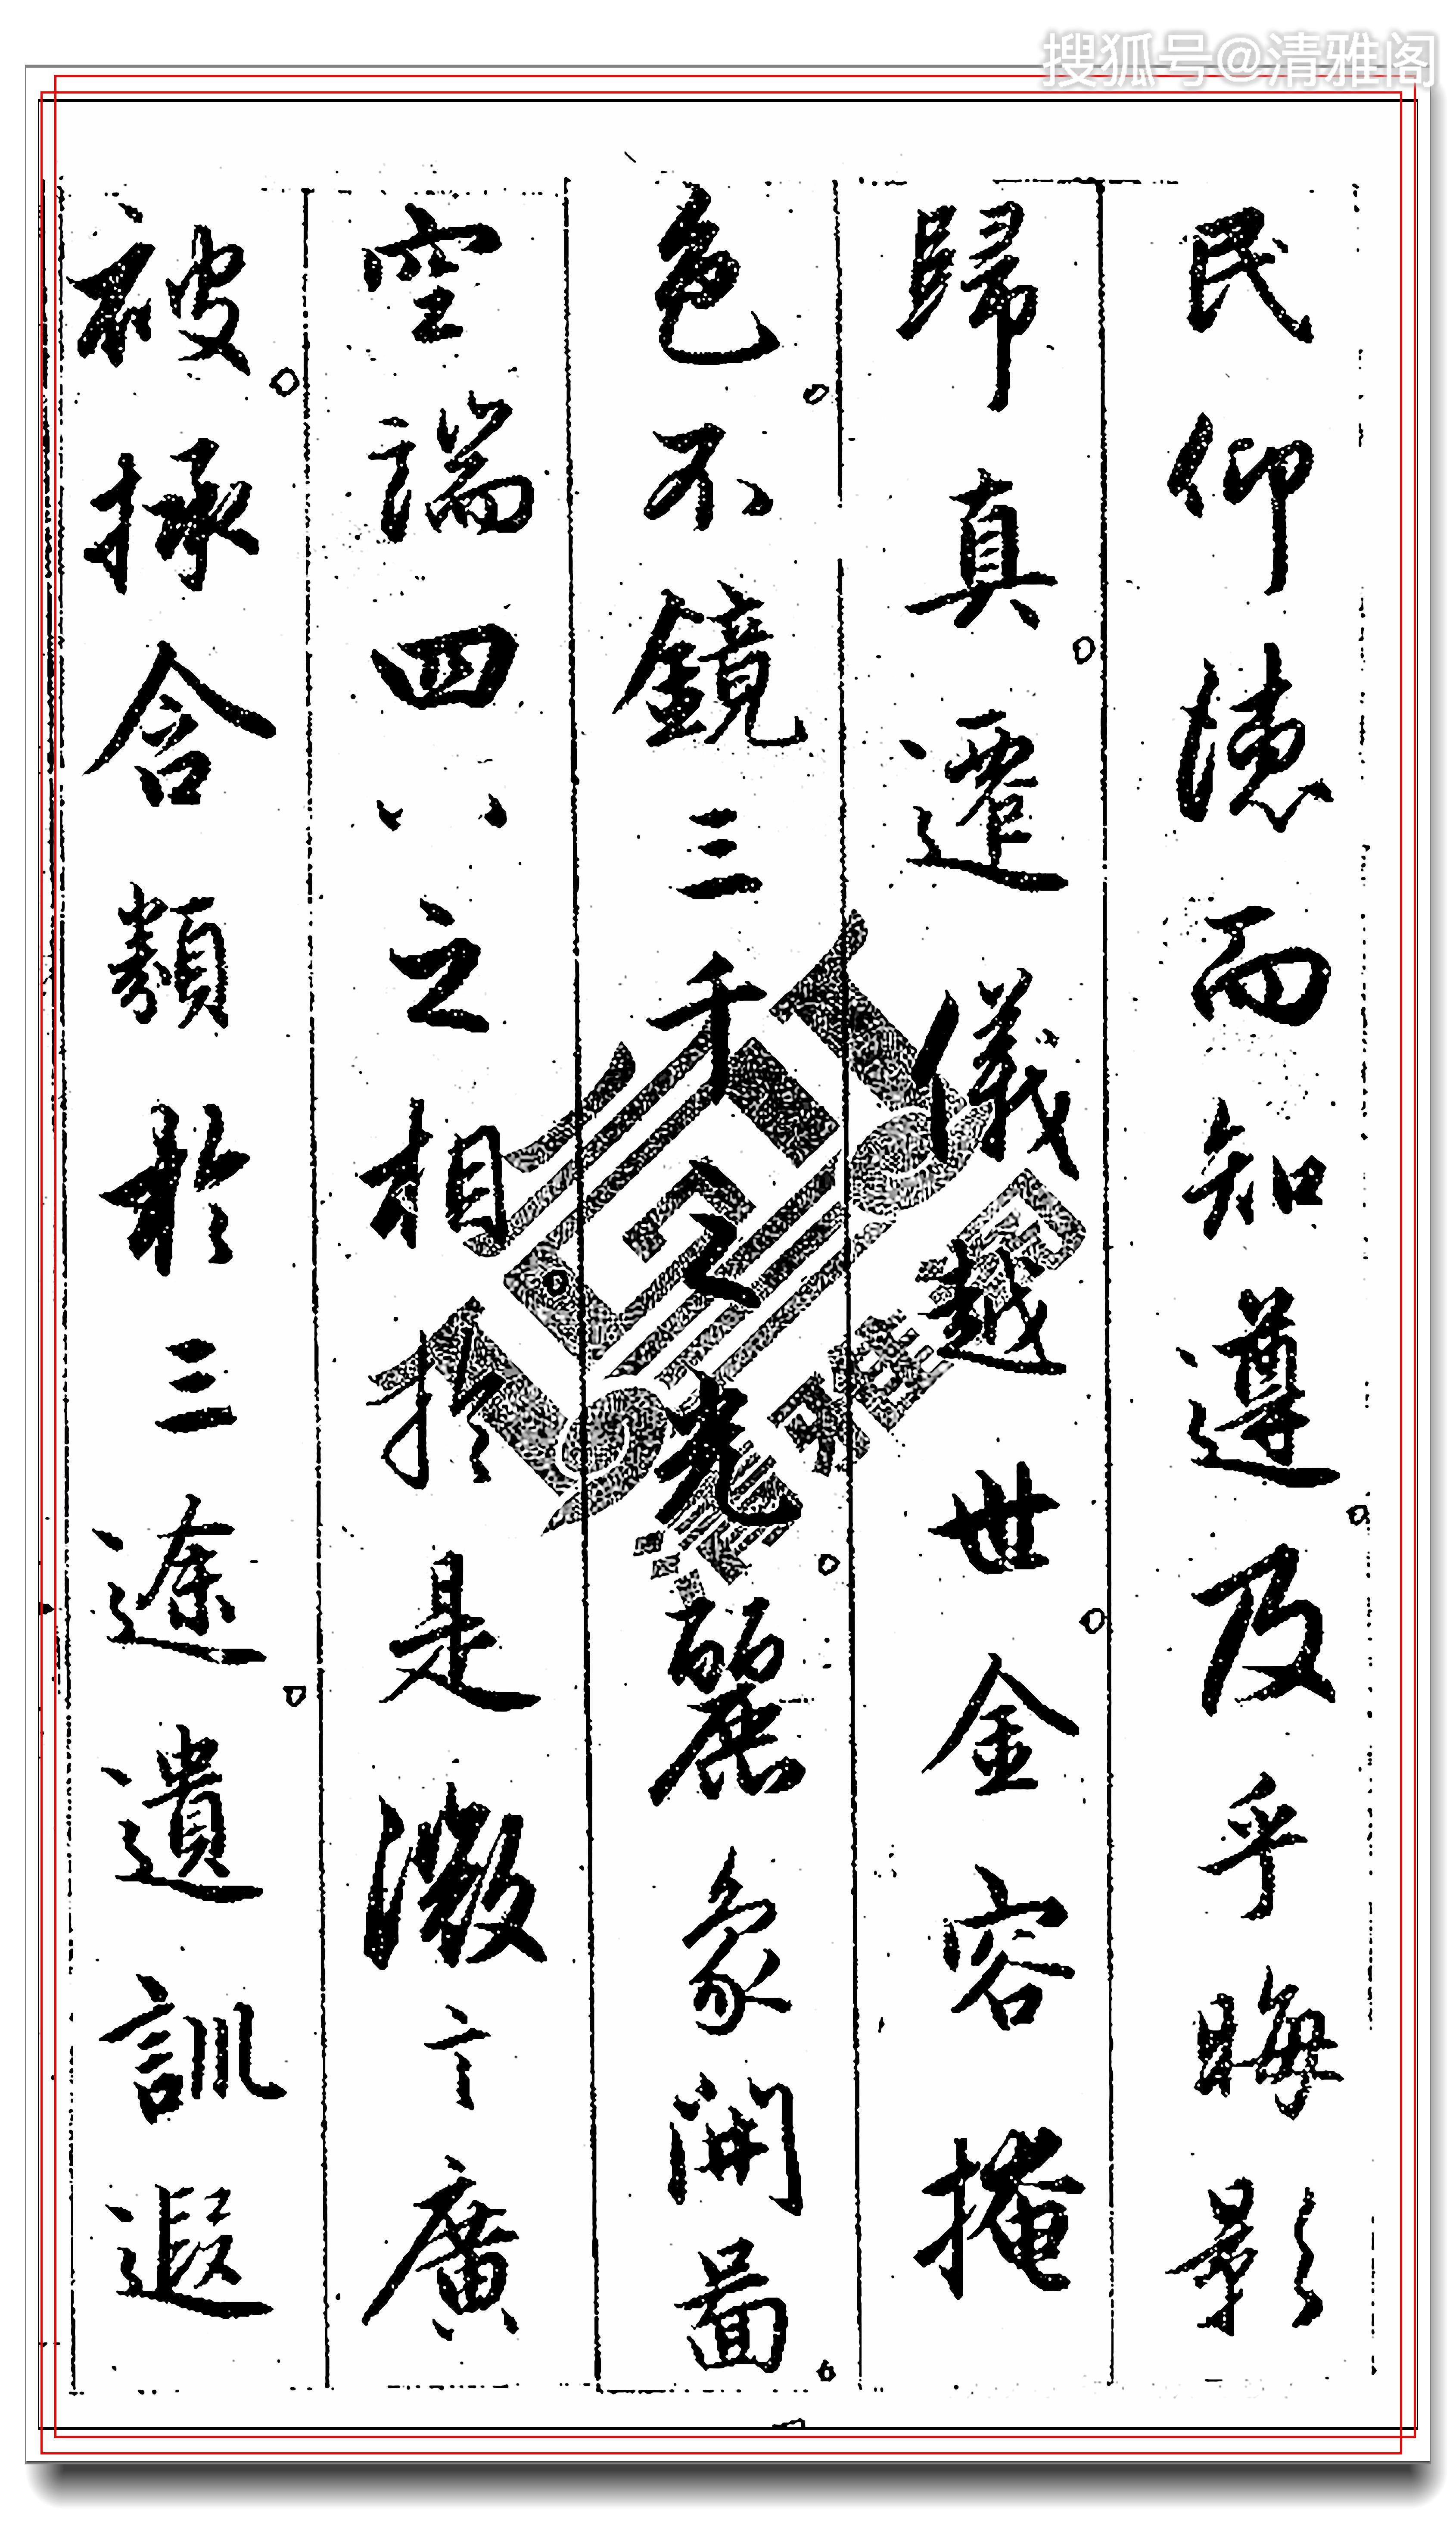 搜狐号@清雅阁
民仰德而知遵及乎晦影
歸真遷儀越世金容掩
色不鏡三千之光麗象開圖
空端四八之相於是微言廣
被拯含類於三途遺訓遐